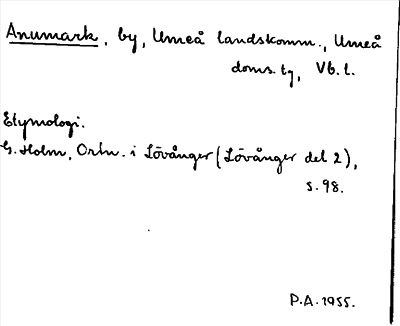 Anumark, by, Umeå landskomm., Umeå
doms.tg, Vb.l.
Etymologi.
G. Holm, Ortn. i Lövånger (Lövånger del 2),
s. 98.
P.A. 1955.